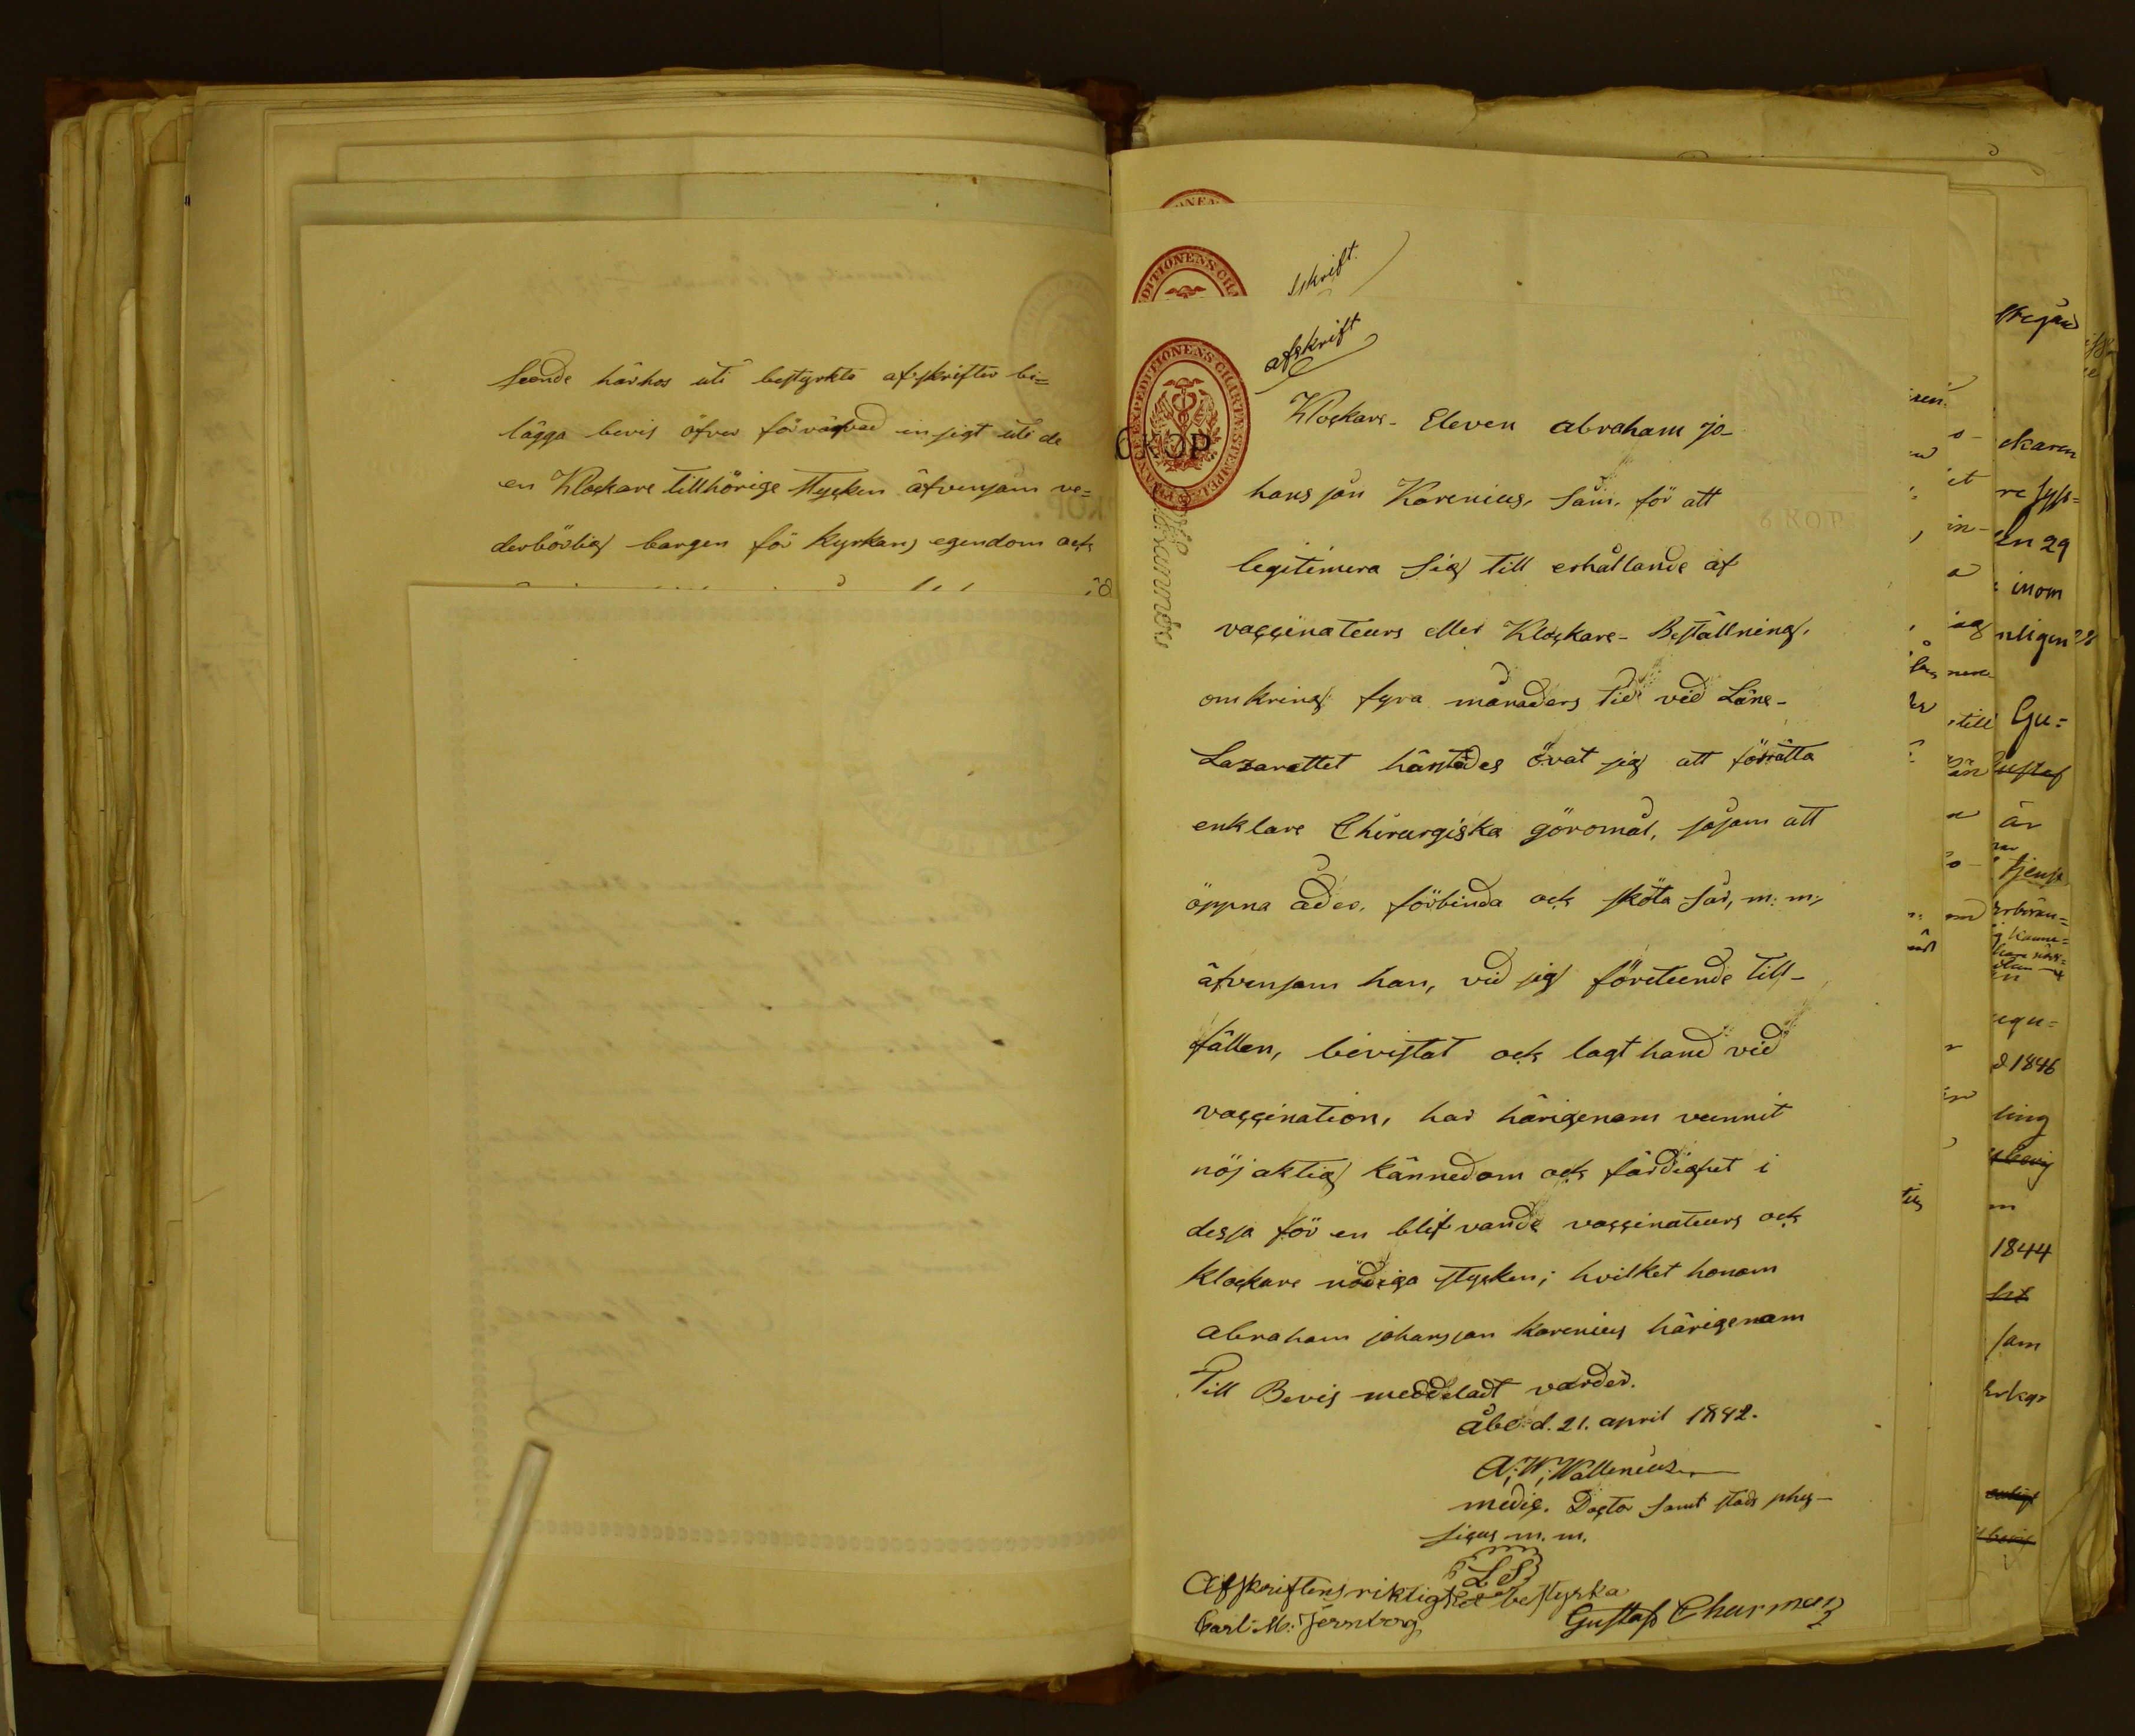 seende härhos uti bestyrkta afskrifter bi=
lägga bevis öfver förvärfvad insigt uti de
en Klockare tillhörige stycken äfvensom ve=
derbörlig borgen för Kyrkans egendom och
skrift.
afskrift
6 KOP
Klockare-Eleven Abraham Jo-
hansson Karenius, som, för att
legitimera sig till erhållande af
vaccinateurs eller Klockare-Beställning,
omkring fyra månaders tid vid Läns-
Lazarettet härstädes övat sig att förrätta
enklare Chirurgiska göromål, såsom att
öppna åder, förbinda och sköta sår, m: m:,
äfvensom han, vid sig företeende till-
fällen, bevistat och lagt hand vid
vaccination, har härigenom vunnit
nöjaktig kännedom och färdighet i
dessa för en blifvande vaccinateurs och
Klockare nödiga stycken; hvilket honom
Abraham Johansson Karenius härigenom
Till Bevis meddeladt varder.
Åbo d. 21. april 1842.
A: W: Wallenius
medic. Doctor samt stads phy-
sicus m. m.
LS
Afskriftens riktighet bestyrka
Carl M: Jernborg,
Gustaf Thurman
6 KOP.
ckaren
en 29
inom
nligen
Gu=
ustaf
är
d 1846
ling
1844
som